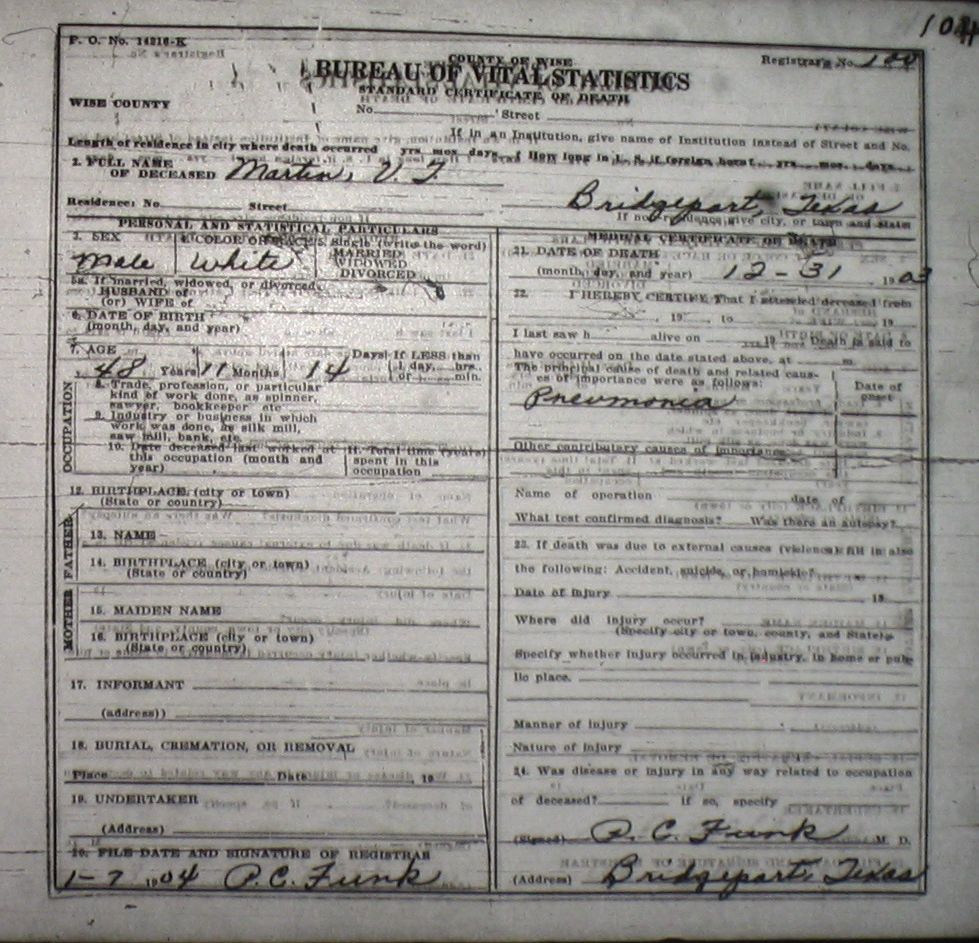 104
P. O. No. 14216-K
COUNTY OF WISE
Registrar's No. 100
BUREAU OF VITAL STATISTICS
STANDARD CERTIFICATE OF DEATH
WISE COUNTY
No. Street
If in an Institution, give name of Institution instead of Street and No.
Length of residence in city where death occurred yrs. mos. days. How long in U. S. if foreign born? yrs. mos. days.
2. FULL NAME
OF DECEASED Martin, V. T.
Residence: No. Street Bridgeport, Texas
If non-residence give city, or town and state
PERSONAL AND STATISTICAL PARTICULARS
3. SEX 4. COLOR OR RACE 5. Single (write the word)
MARRIED
WIDOWED
DIVORCED
Male White
5a. If married, widowed, or divorced,
HUSBAND of
(or) WIFE of
6. DATE OF BIRTH
(month, day, and year)
7. AGE Days If LESS than
1 day, hrs.
48 Years 11 Months 14 or min.
OCCUPATION
8. Trade, profession, or particular
kind of work done, as spinner,
sawyer, bookkeeper etc
9. Industry or business in which
work was done, as silk mill,
saw mill, bank, etc.
10. Date deceased last worked at
this occupation (month and
year)
11. Total time (years)
spent in this
occupation
12. BIRTHPLACE (city or town)
(State or country)
FATHER
13. NAME
14. BIRTHPLACE (city or town)
(State or country)
MOTHER
15. MAIDEN NAME
16. BIRTHPLACE (city or town)
(State or country)
17. INFORMANT
(address))
18. BURIAL, CREMATION, OR REMOVAL
Place Date 19
19. UNDERTAKER
(Address)
20. FILE DATE AND SIGNATURE OF REGISTRAR
1-7 1904 P.C. Funk
MEDICAL CERTIFICATE OF DEATH
21. DATE OF DEATH
(month, day, and year) 12-31 1903
22. I HEREBY CERTIFY That I attended deceased from
19 to 19
I last saw h alive on 19 Death is said to
have occurred on the date stated above, at m.
The principal cause of death and related caus-
es of importance were as follows:
Date of
onset
Pneumonia
Other contributary causes of importance
Name of operation date of
What test confirmed diagnosis? Was there an autopsy?
23. If death was due to external causes (violence) fill in also
the following: Accident, suicide, or homicide?
Date of injury 19
Where did injury occur?
(Specify city or town, county, and State)
Specify whether injury occurred in industry, in home or pub-
lic place.
Manner of injury
Nature of injury
24. Was disease or injury in any way related to occupation
of deceased? if so, specify
(Signed) P. C. Funk M. D.
(Address) Bridgeport, Texas